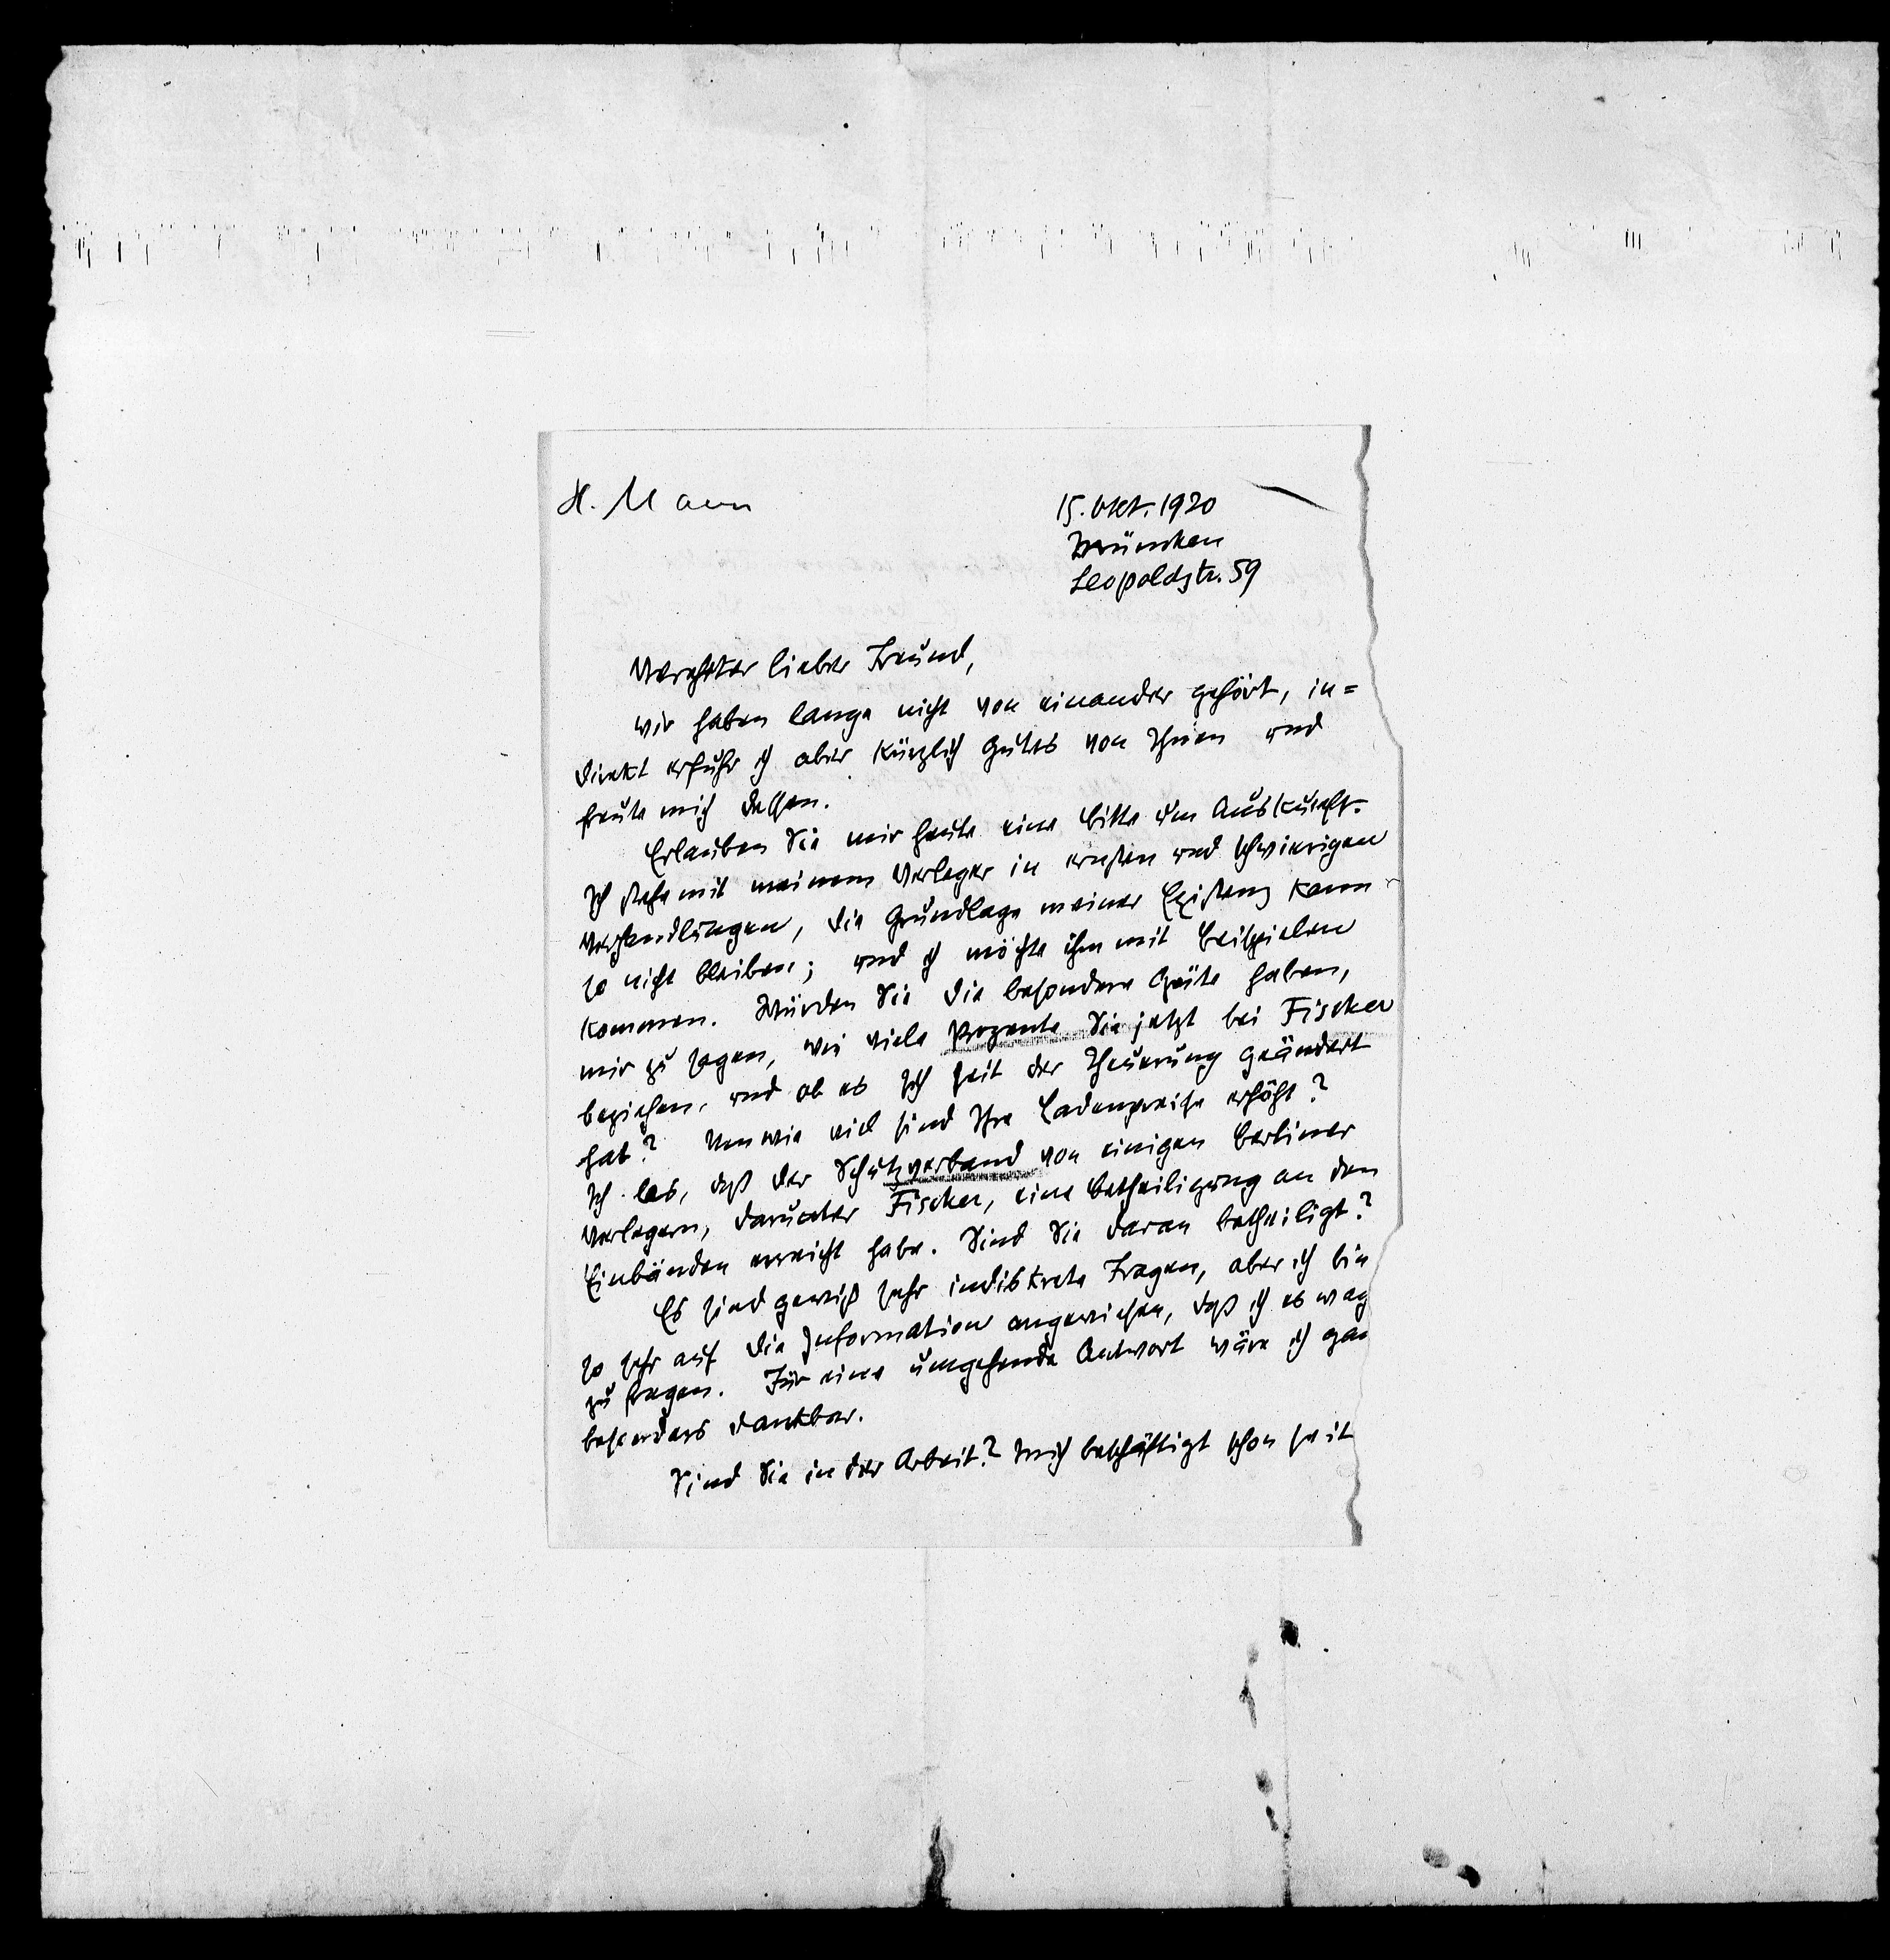 H. Mann
15. Okt. 1920
München
Leopoldstr. 59
Verehrter lieber Freund,
wir haben lange nicht von einander gehört, in=
direkt erfuhr ich aber kürzlich Gutes von Ihnen und
freute mich dessen.
Erlauben Sie mir heute eine Bitte um Auskunft.
Ich stehe mit meinem Verleger in ernsten und schwierigen
Verhandlungen, die Grundlage meiner Existenz kann
so nicht bleiben; und ich möchte ihm mit Beispielen
kommen. Würden Sie die besondere Güte haben,
mir zu sagen, wie viele Prozente Sie jetzt bei Fischer
beziehen, und ob es sich seit der Theuerung geändert
hat? Um wie viel sind Ihre Ladenpreise erhöht?
Ich las, daß der Schutzverband von einigen Berliner
Verlegern, darunter Fischer, eine Betheiligung an den
Einbänden erreicht habe. Sind Sie daran betheiligt?
Es sind gewiß sehr indiskrete Fragen, aber ich bin
so sehr auf die Information angewiesen, daß ich es wag
zu fragen. Für eine umgehende Antwort wäre ich gan
besonders dankbar.
Sind Sie in der Arbeit? Mich beschäftigt schon seit